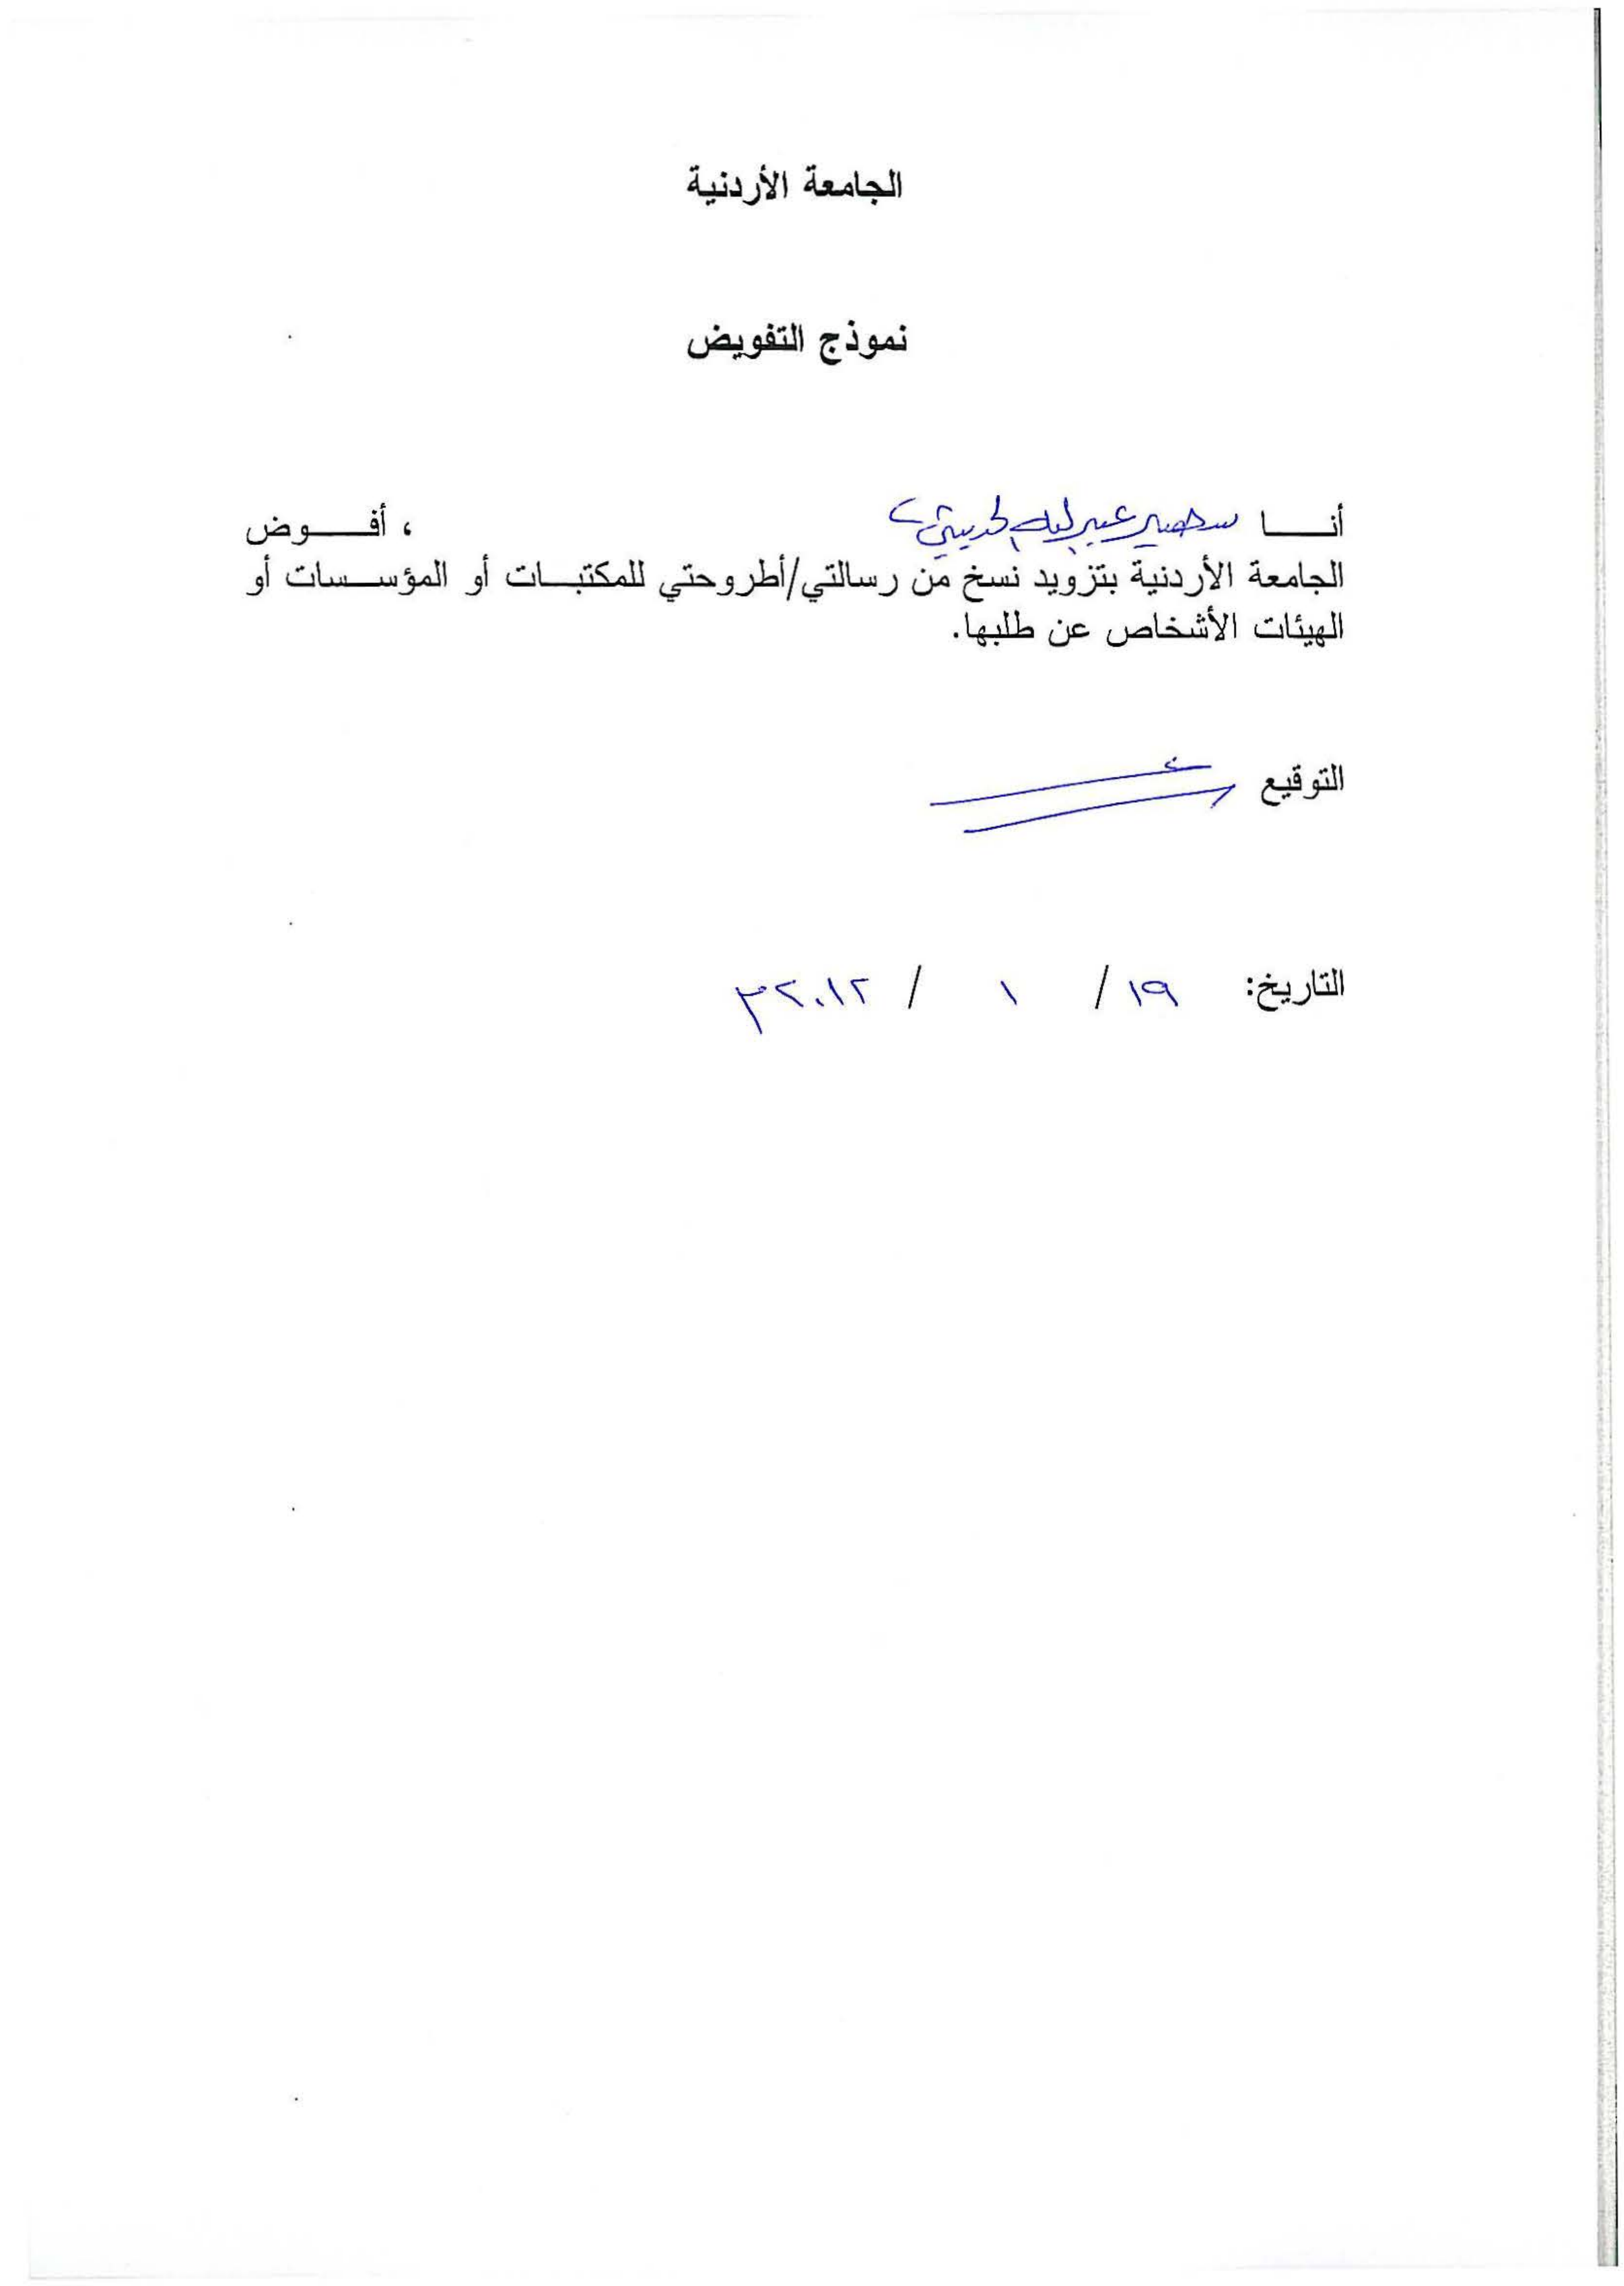 الجامعة الأردنية
نموذج التفويض
أنـــا سهير عبد الله الحديثي ، أفـــوض
الجامعة الأردنية بتزويد نسخ من رسالتي/أطروحتي للمكتبـات أو المؤسـسات أو
الهيئات الأشخاص عن طلبها.
التوقيع
التاريخ: ١٩ / ١ / ٢٠١٢م